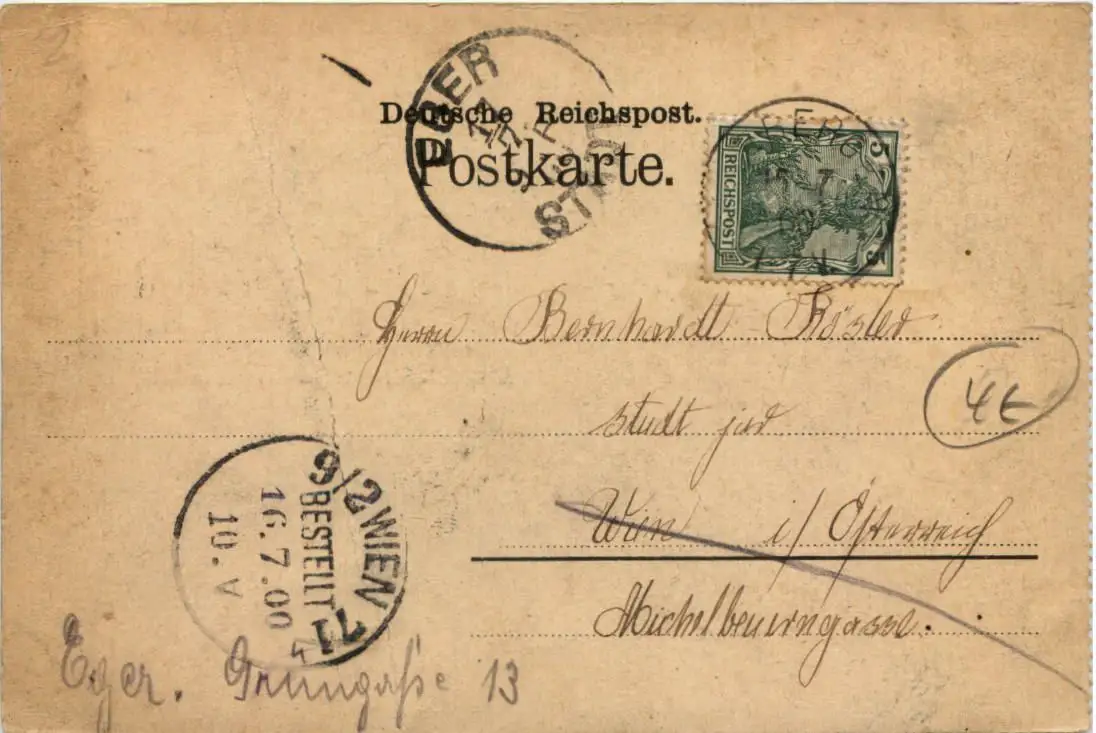 EGER
STADT
17 7
Deutsche Reichspost.
Postkarte.
BERG
15 7
00
7-8 V.
5
REICHSPOST
5
Herrn Bernhardt Rösler
studt jud
4E
Wien i/ Österreich
Michelbeuerngasse.
9/2 WIEN 71
BESTELLT
16.7.00
10. V
Eger. Grüngaße 13